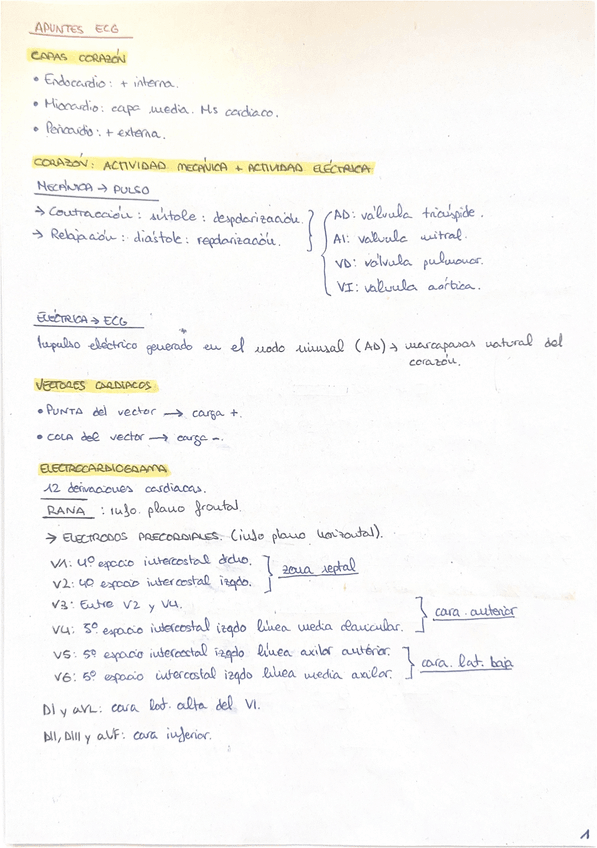 APUNTES ECG
CAPAS CORAZÓN
• Endocardio: + interna.
• Miocardio: capa media. Ms cardiaco.
• Pericardio: + externa.
CORAZÓN: ACTIVIDAD MECÁNICA + ACTIVIDAD ELÉCTRICA
MECÁNICA → PULSO
→ Contracción: sístole: despolarización.
→ Relajación: diástole: repolarización.
AD: válvula tricúspide.
AI: válvula mitral.
VD: válvula pulmonar.
VI: válvula aórtica.
ELÉCTRICA → ECG
Impulso eléctrico generado en el nodo sinusal (AD) → marcapasos natural del
corazón.
VECTORES CARDIACOS
• PUNTA del vector → carga +.
• COLA del vector → carga -.
ELECTROCARDIOGRAMA
12 derivaciones cardiacas.
RANA: info. plano frontal.
→ ELECTRODOS PRECORDIALES. (info plano horizontal).
V1: 4º espacio intercostal dcho.
V2: 4º espacio intercostal izqdo.
zona septal
V3: Entre V2 y V4.
V4: 5º espacio intercostal izqdo línea media clavicular.
cara anterior
V5: 5º espacio intercostal izqdo línea axilar anterior.
V6: 5º espacio intercostal izqdo línea media axilar.
cara. lat. baja
DI y aVL: cara lat. alta del VI.
DII, DIII y aVF: cara inferior.
1